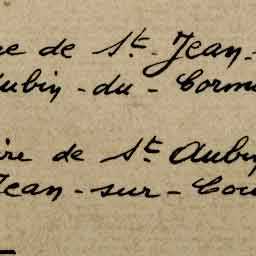 re de St. Jean-
Aubin-du-Corm
ire de St Aubin
Jean-sur-Cou